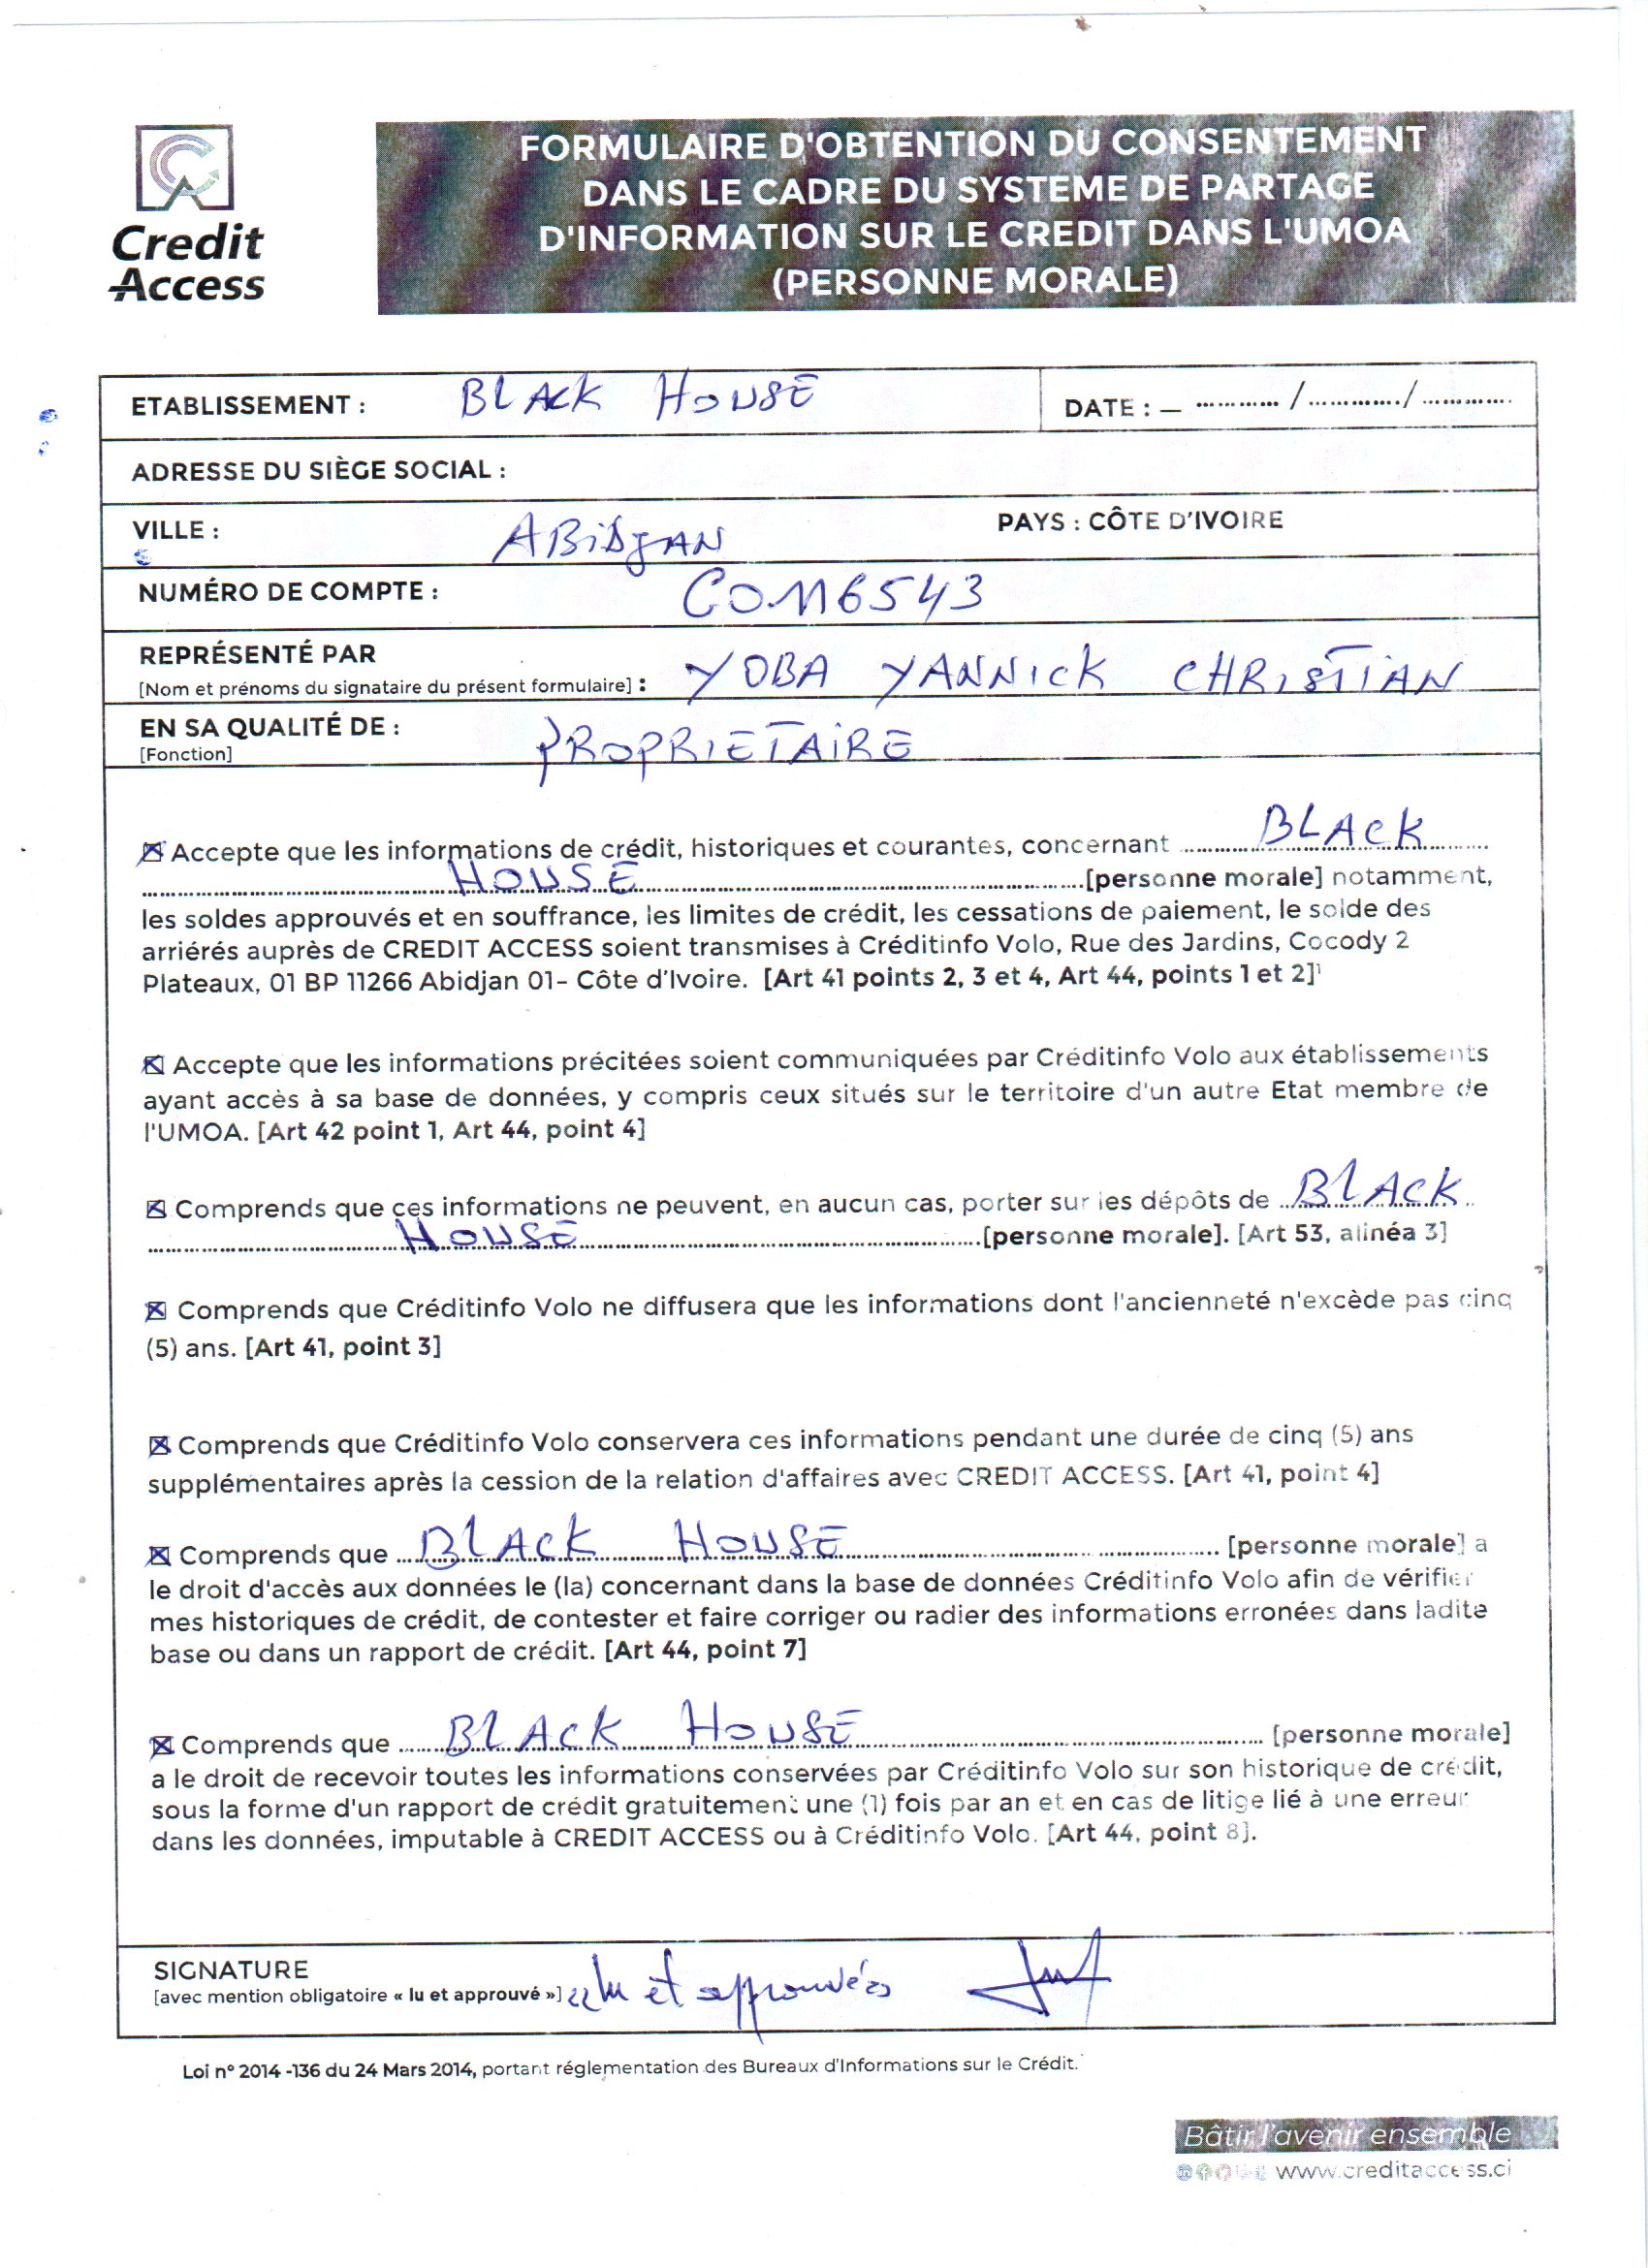 Credit
Access
FORMULAIRE D'OBTENTION DU CONSENTEMENT
DANS LE CADRE DU SYSTEME DE PARTAGE
D'INFORMATION SUR LE CREDIT DANS L'UMOA
(PERSONNE MORALE)
ETABLISSEMENT : BLACK HOUSE DATE : – ............ /............./.............
ADRESSE DU SIÈGE SOCIAL :
VILLE : ABIDJAN PAYS : CÔTE D'IVOIRE
NUMÉRO DE COMPTE : C0116543
REPRÉSENTÉ PAR
[Nom et prénoms du signataire du présent formulaire] : YOBA YANNICK CHRISTIAN
EN SA QUALITÉ DE : PROPRIETAIRE
[Fonction]
☒ Accepte que les informations de crédit, historiques et courantes, concernant BLACK
HOUSE [personne morale] notamment,
les soldes approuvés et en souffrance, les limites de crédit, les cessations de paiement, le solde des
arriérés auprès de CREDIT ACCESS soient transmises à Créditinfo Volo, Rue des Jardins, Cocody 2
Plateaux, 01 BP 11266 Abidjan 01- Côte d'Ivoire. [Art 41 points 2, 3 et 4, Art 44, points 1 et 2]¹
☒ Accepte que les informations précitées soient communiquées par Créditinfo Volo aux établissements
ayant accès à sa base de données, y compris ceux situés sur le territoire d'un autre Etat membre de
l'UMOA. [Art 42 point 1, Art 44, point 4]
☒ Comprends que ces informations ne peuvent, en aucun cas, porter sur les dépôts de BLACK
HOUSE [personne morale]. [Art 53, alinéa 3]
☒ Comprends que Créditinfo Volo ne diffusera que les informations dont l'ancienneté n'excède pas cinq
(5) ans. [Art 41, point 3]
☒ Comprends que Créditinfo Volo conservera ces informations pendant une durée de cinq (5) ans
supplémentaires après la cession de la relation d'affaires avec CREDIT ACCESS. [Art 41, point 4]
☒ Comprends que BLACK HOUSE [personne morale] a
le droit d'accès aux données le (la) concernant dans la base de données Créditinfo Volo afin de vérifier
mes historiques de crédit, de contester et faire corriger ou radier des informations erronées dans ladite
base ou dans un rapport de crédit. [Art 44, point 7]
☒ Comprends que BLACK HOUSE [personne morale]
a le droit de recevoir toutes les informations conservées par Créditinfo Volo sur son historique de crédit,
sous la forme d'un rapport de crédit gratuitement une (1) fois par an et en cas de litige lié à une erreur
dans les données, imputable à CREDIT ACCESS ou à Créditinfo Volo. [Art 44, point 8].
SIGNATURE
[avec mention obligatoire « lu et approuvé »] «lu et approuvé»
Loi n° 2014 -136 du 24 Mars 2014, portant réglementation des Bureaux d'Informations sur le Crédit.
Bâtir l'avenir ensemble
www.creditaccess.ci